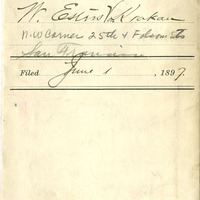 W. Estin V. Krakau
N.W. Corner 25th & Folsom Sts
San Francisco
Filed June 1, 1897.